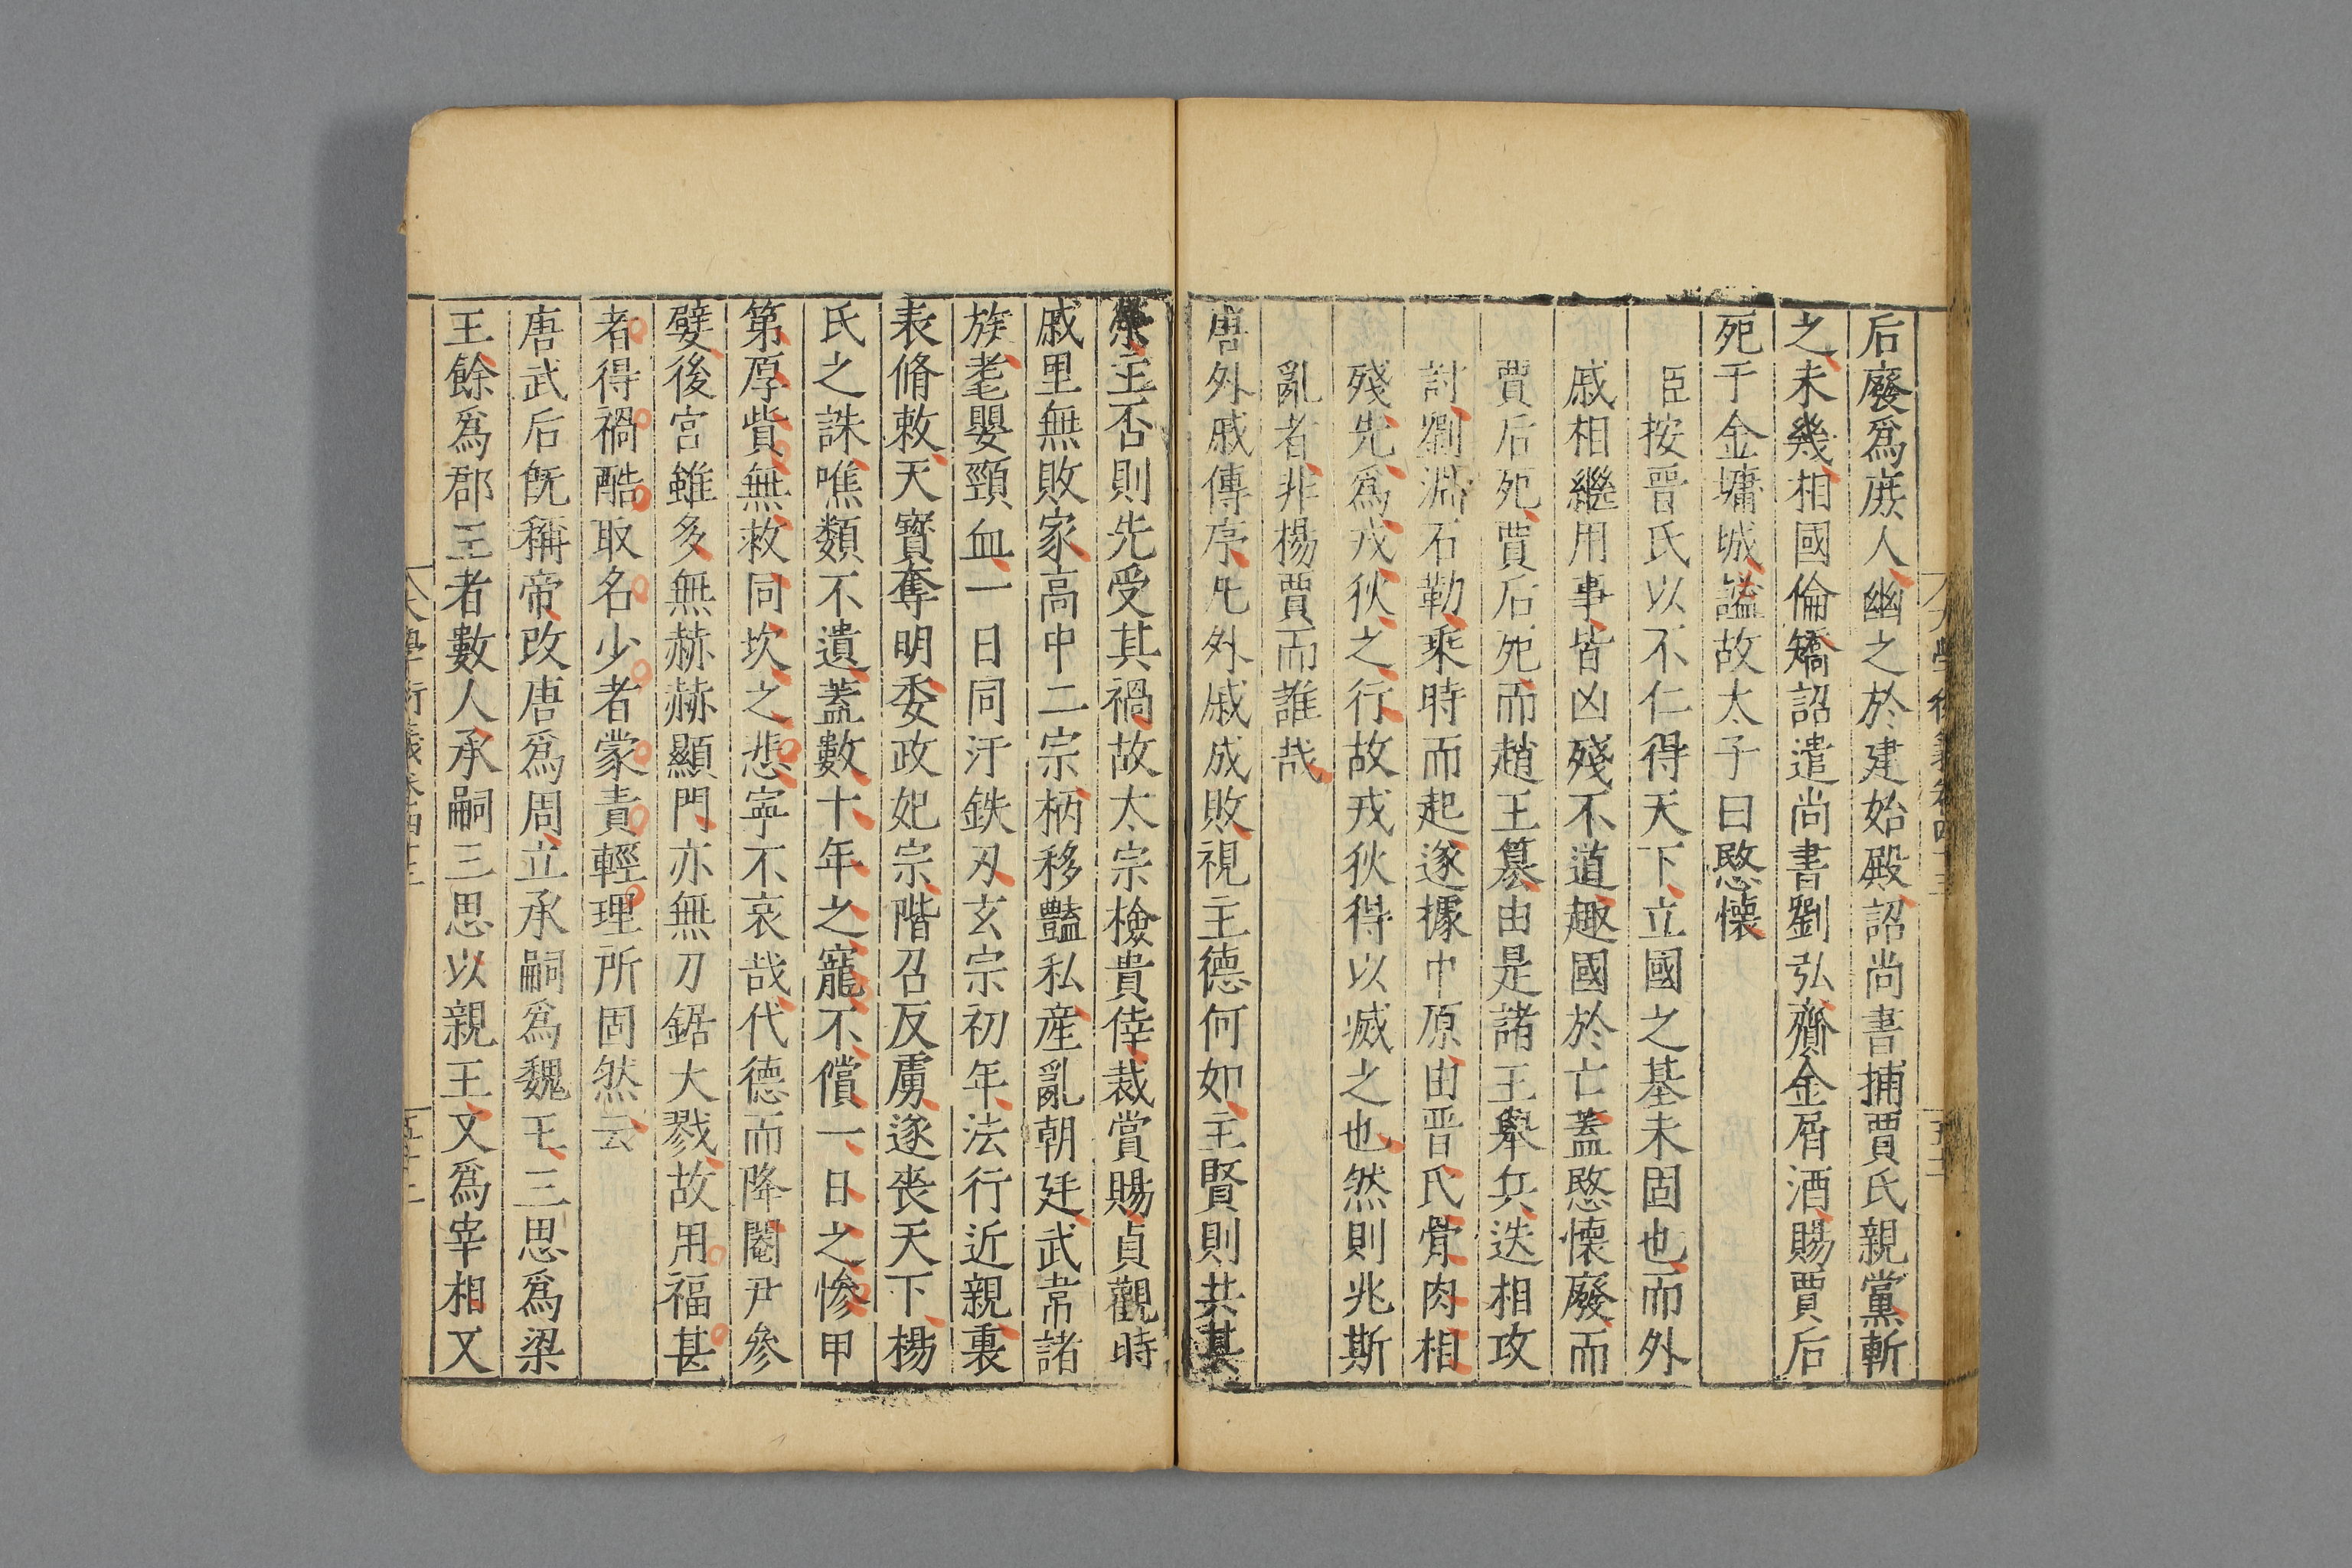 后廢爲庻人幽之於建始殿詔尚書捕賈氏親黨斬
之未幾相國倫矯詔遣尚書劉弘齎金屑酒賜賈后
死于金墉城謚故太子曰愍懷
臣按晉氏以不仁得天下立國之基未固也而外
戚相繼用事皆凶殘不道趣國於亡蓋愍懷廢而
賈后死賈后死而趙王簒由是諸王舉兵迭相攻
討劉淵石勒乘時而起遂據中原由晋氏骨肉相
殘先爲戎狄之行故戎狄得以滅之也然則兆斯
亂者非楊賈而誰哉
唐外戚傳序凡外戚成敗視主德何如主賢則共其
榮主否則先受其禍故太宗檢貴倖裁賞賜貞觀時
戚里無敗家高中二宗柄移豔私産亂朝廷武韋諸
族耄嬰頸血一日同汙鈇刃玄宗初年法行近親裏
表脩敕天寳奪明委政妃宗階召反虜遂喪天下楊
氏之誅噍類不遺蓋數十年之寵不償一日之慘甲
第厚貲無救同坎之悲寧不哀哉代德而降閹尹參
嬖後宮雖多無赫赫顯門亦無刀鋸大戮故用福甚
者得禍酷取名少者蒙責輕理所固然云
唐武后旣稱帝改唐爲周立承嗣爲魏王三思爲梁
王餘爲郡王者數人承嗣三思以親王又爲宰相又